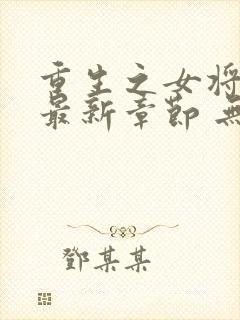 重生之女将
最新章节 无
鄧某某